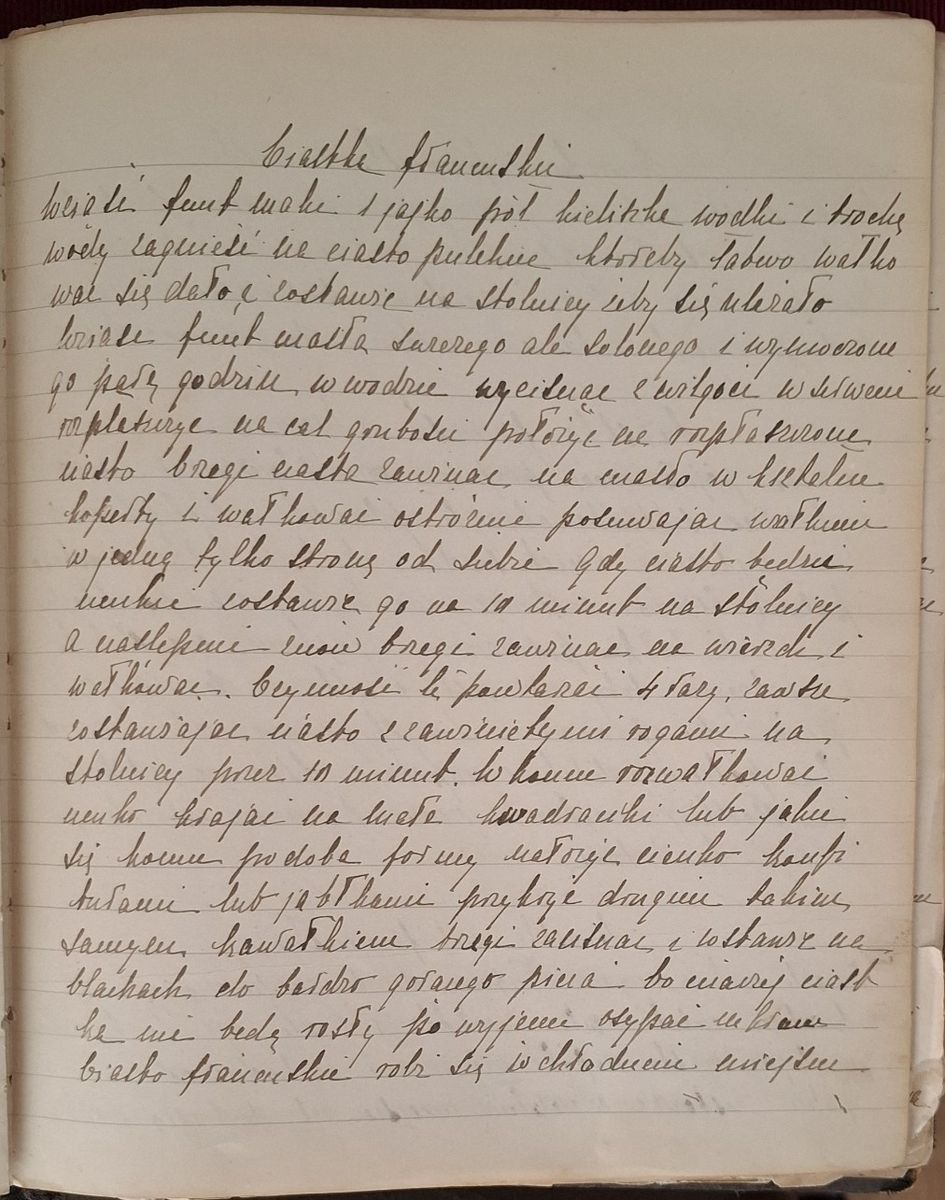 Ciastka francuskie
Wziąść funt mąki 1 jajko pół kieliszka wodki i trochę
wody zagnieść na ciasto pulchne ktoreby łatwo wałko
wac się dało i zostawic na stolnicy żeby się uleżało
Wziasc funt masła swerzego ale solonego i wymoczone
go parę godzin w wodzie wycisnac z wilgoci w serwecie
rozplaszczyc na cal grubosci położyć na rozpłaszczone
ciasto brzegi ciasta zawinac na masło w ksztalcie
koperty i wałkowac ostróżnie posuwajac wałkiem
w jedną tylko stronę od siebie Gdy ciasto bedzie
cienkie zostawic go na 10 minut na stolnicy
a nastepnie znow brzegi zawinac na wierzch i
wałkowac. Czynność tę powtarzać 4 razy, zawsze
zostawiajac ciasto z zawinietymi rogami na
stolnicy przez 10 minut. W koncu rozwałkowac
cienko krajać na małe kwadraciki lub jakie
się komu podoba formy nałożyc cienko konfi
turami lub jabłkami przykryc drugim takim
samym kawałkiem brzegi zacisnac i wstawic na
blachach do bardzo gorącego pieca bo inaczej ciast
ka nie będą rosły po wyjęciu osypać cukrem
Ciasto francuskie robi się w chłodnem miejscu